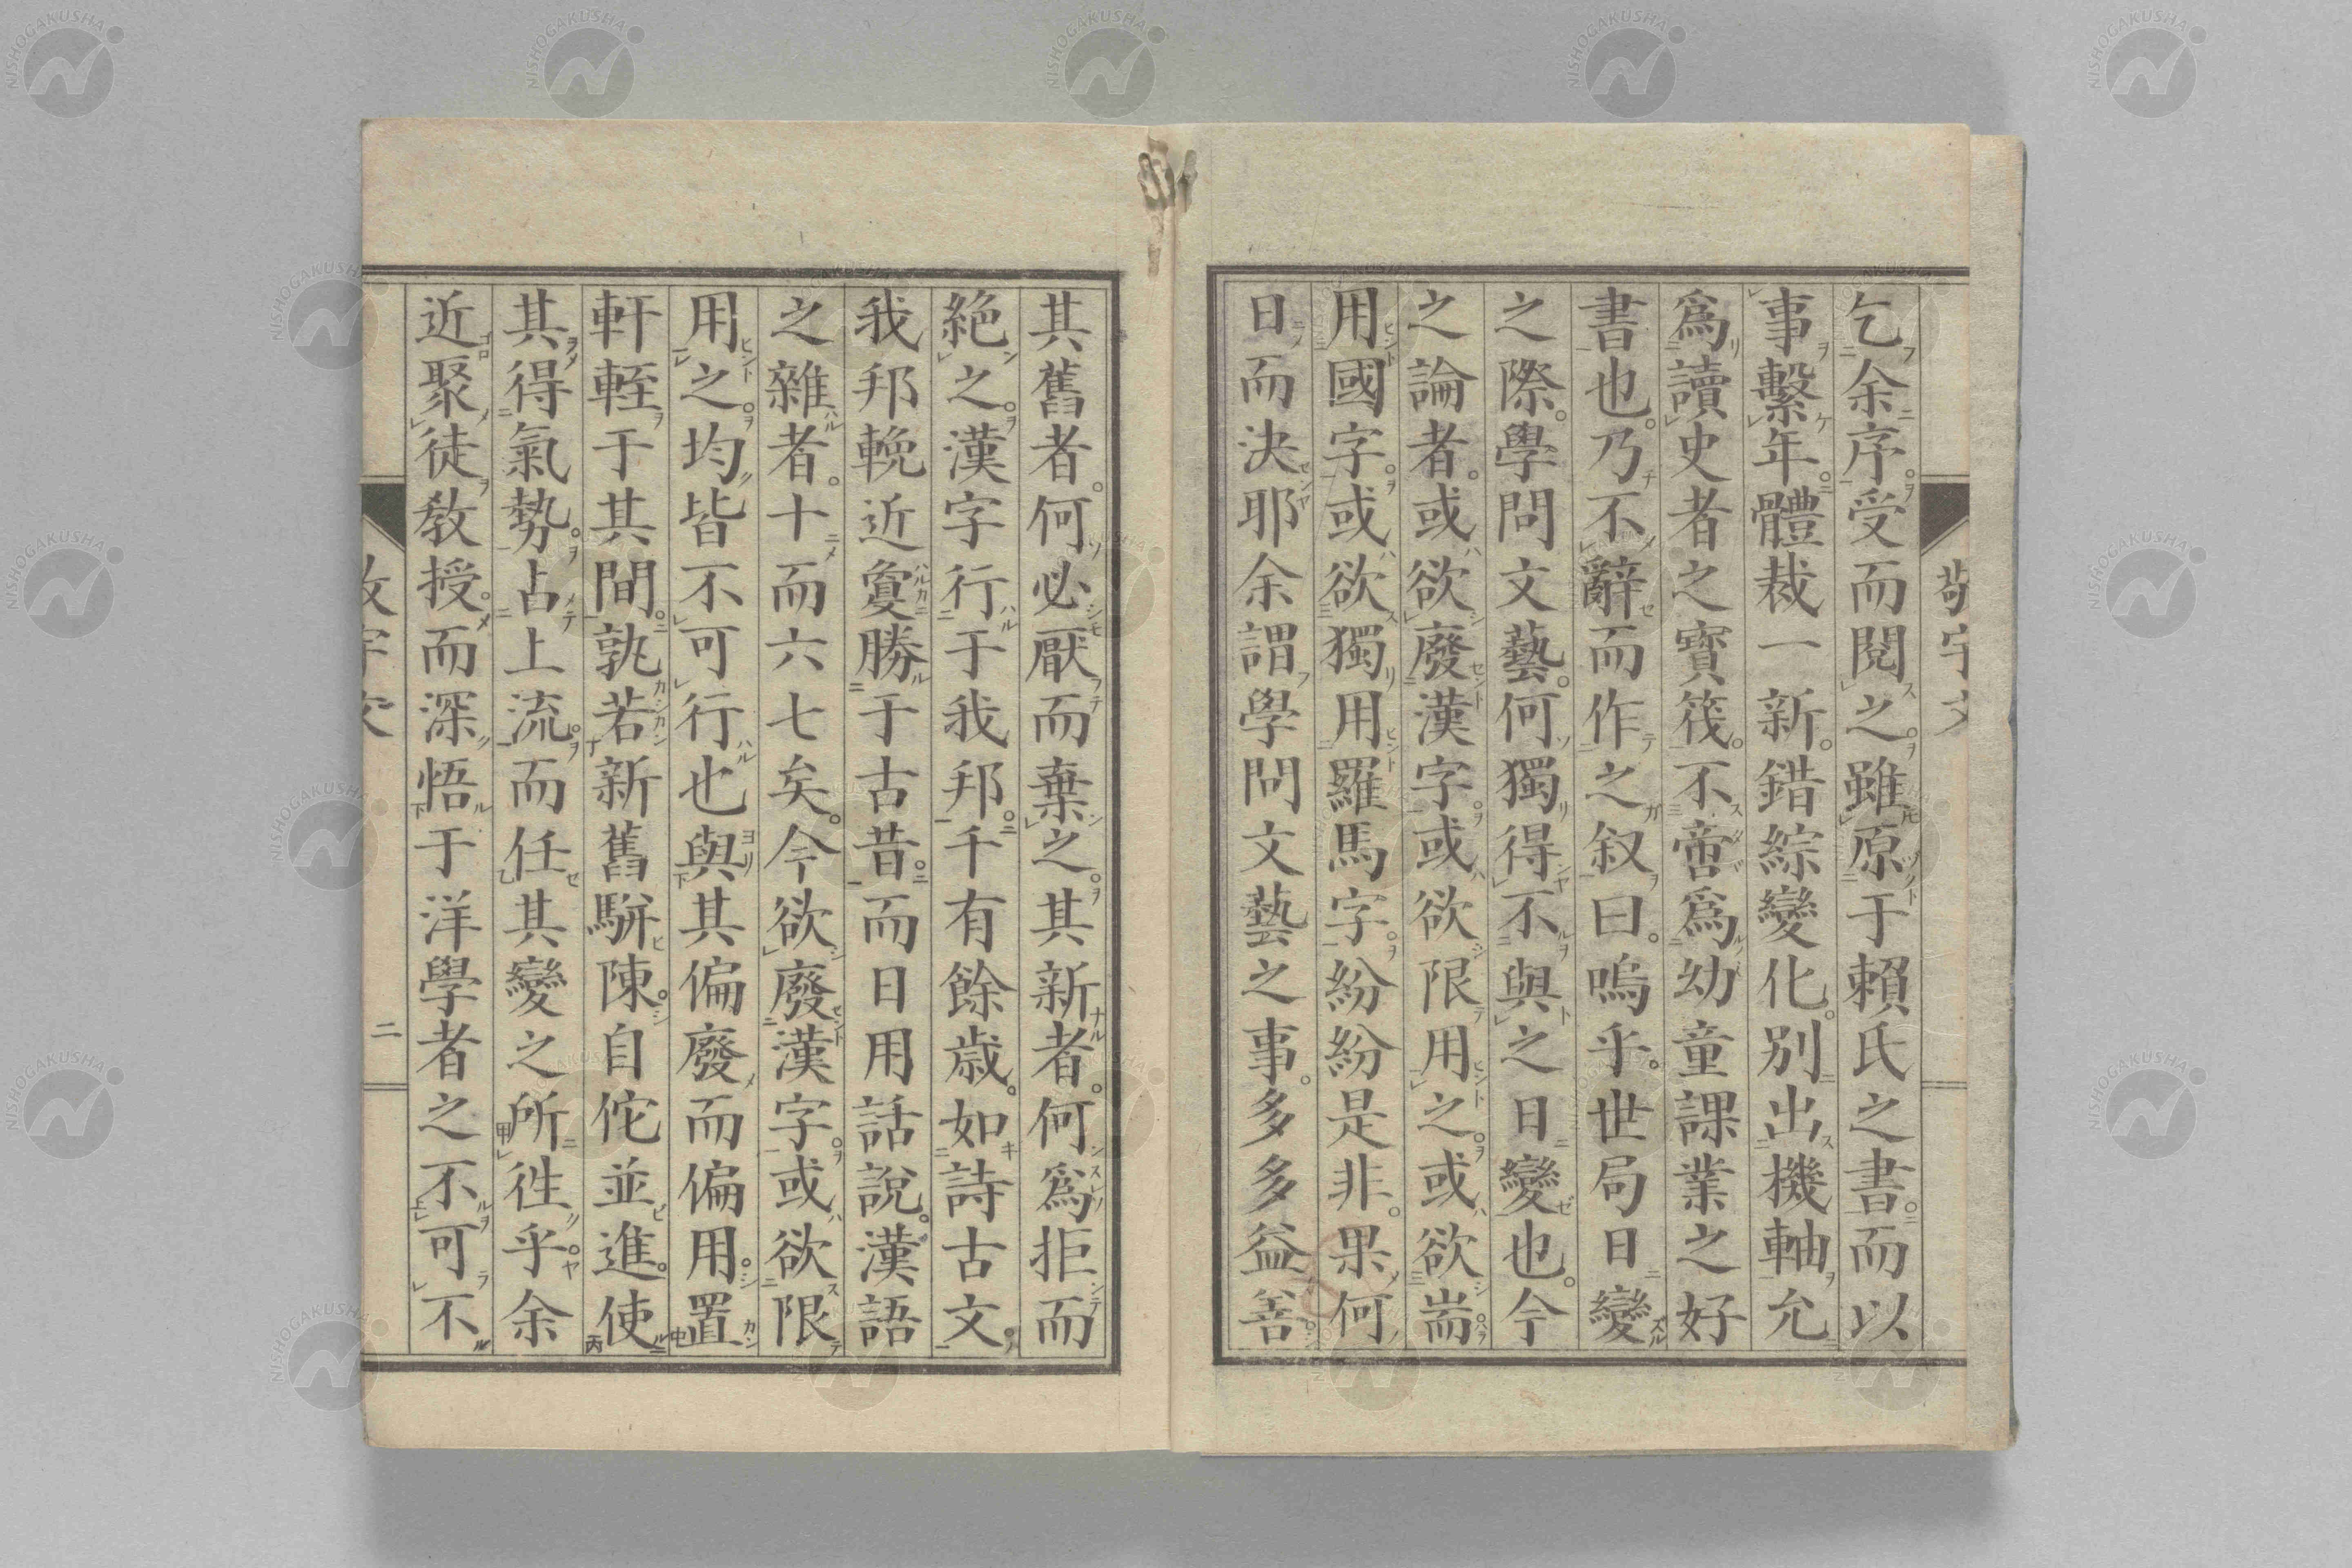 乞余序。受而閲之。雖原于賴氏之書。而以
事繫年。體裁一新。錯綜變化。別出機軸。允
爲讀史者之寶筏。不啻爲幼童課業之好
書也。乃不辭而作之叙曰。嗚乎。世局日變
之際。學問文藝。何獨得不與之日變也。今
之論者。或欲廢漢字。或欲限用之。或欲耑
用國字。或欲獨用羅馬字。紛紛是非。果何
日而決耶余謂學問文藝之事。多多益善。
其舊者。何必厭而棄之。其新者。何爲拒而
絶之。漢字行于我邦。千有餘歳。如詩古文。
我邦輓近敻勝于古昔。而日用話說。漢語
之雜者。十而六七矣。今欲廢漢字。或欲限
用之。均皆不可行也與其偏廢而偏用。置
軒輊于其間。孰若新舊駢陳。自佗並進。使
其得氣勢。占上流。而任其變之所徃乎。余
近聚徒教授。而深悟于洋學者之不可不
二
NISHOGAKUSHA